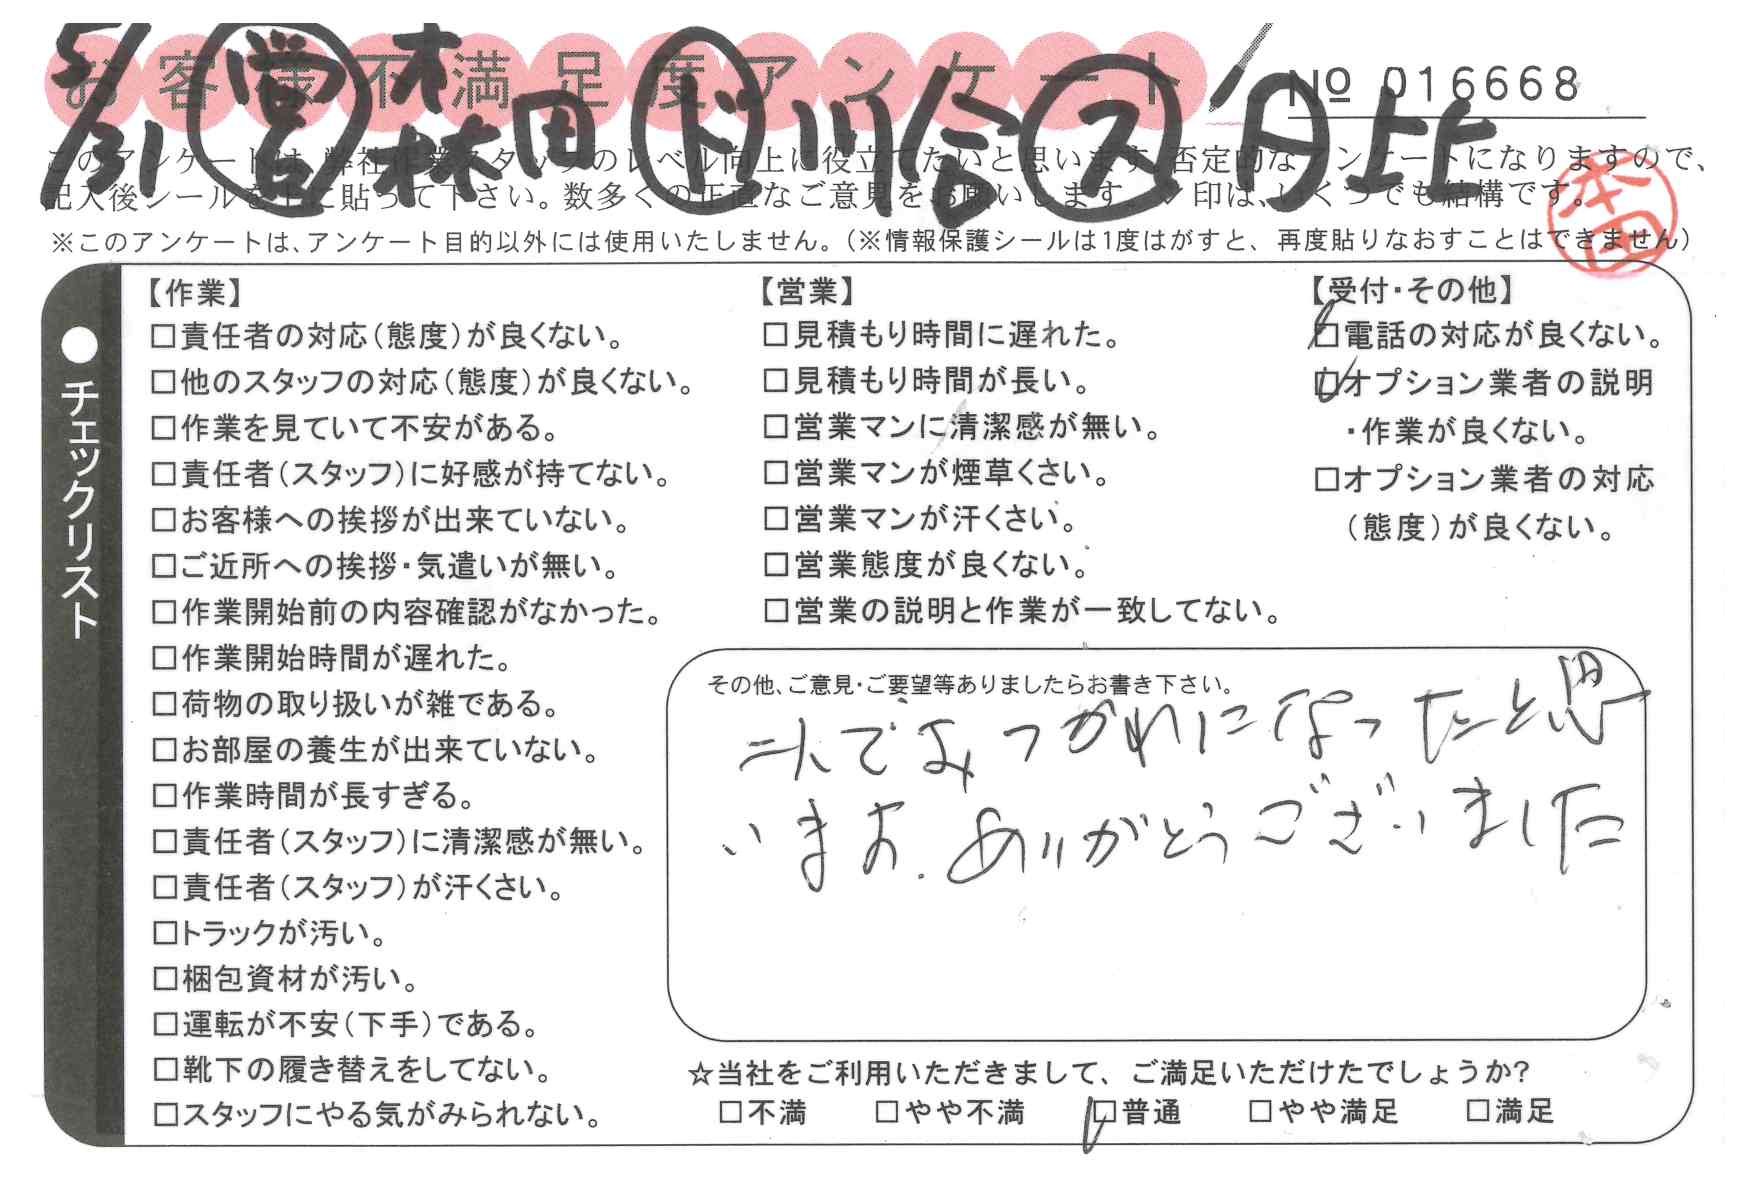 お客様不満足度アンケート
No 016668
5/31 営 林田 ド 川合 ス 日上
このアンケートは、弊社作業スタッフのレベル向上に役立てたいと思います。否定的なアンケートになりますので、
記入後シールを上に貼って下さい。数多くの正直なご意見をお願いします。レ印は、いくつでも結構です。
本田
※このアンケートは、アンケート目的以外には使用いたしません。(※情報保護シールは1度はがすと、再度貼りなおすことはできません)
●チェックリスト
【作業】
□責任者の対応(態度)が良くない。
□他のスタッフの対応(態度)が良くない。
□作業を見ていて不安がある。
□責任者(スタッフ)に好感が持てない。
□お客様への挨拶が出来ていない。
□ご近所への挨拶・気遣いが無い。
□作業開始前の内容確認がなかった。
□作業開始時間が遅れた。
□荷物の取り扱いが雑である。
□お部屋の養生が出来ていない。
□作業時間が長すぎる。
□責任者(スタッフ)に清潔感が無い。
□責任者(スタッフ)が汗くさい。
□トラックが汚い。
□梱包資材が汚い。
□運転が不安(下手)である。
□靴下の履き替えをしてない。
□スタッフにやる気がみられない。
【営業】
□見積もり時間に遅れた。
□見積もり時間が長い。
□営業マンに清潔感が無い。
□営業マンが煙草くさい。
□営業マンが汗くさい。
□営業態度が良くない。
□営業の説明と作業が一致してない。
【受付・その他】
□電話の対応が良くない。
□オプション業者の説明
・作業が良くない。
□オプション業者の対応
(態度)が良くない。
その他、ご意見・ご要望等ありましたらお書き下さい。
二人でおつかれになったと思
います。ありがとうございました
☆当社をご利用いただきまして、ご満足いただけたでしょうか?
□不満 □やや不満 □普通 □やや満足 □満足